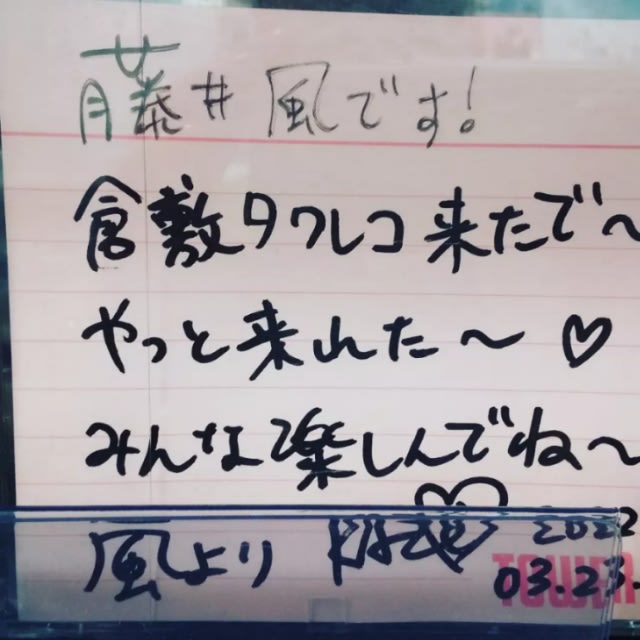 藤井 風です!
倉敷タワレコ来たで〜
やっと来れた〜♡
みんな楽しんでね〜
風より
2022
03.23.
TOWER